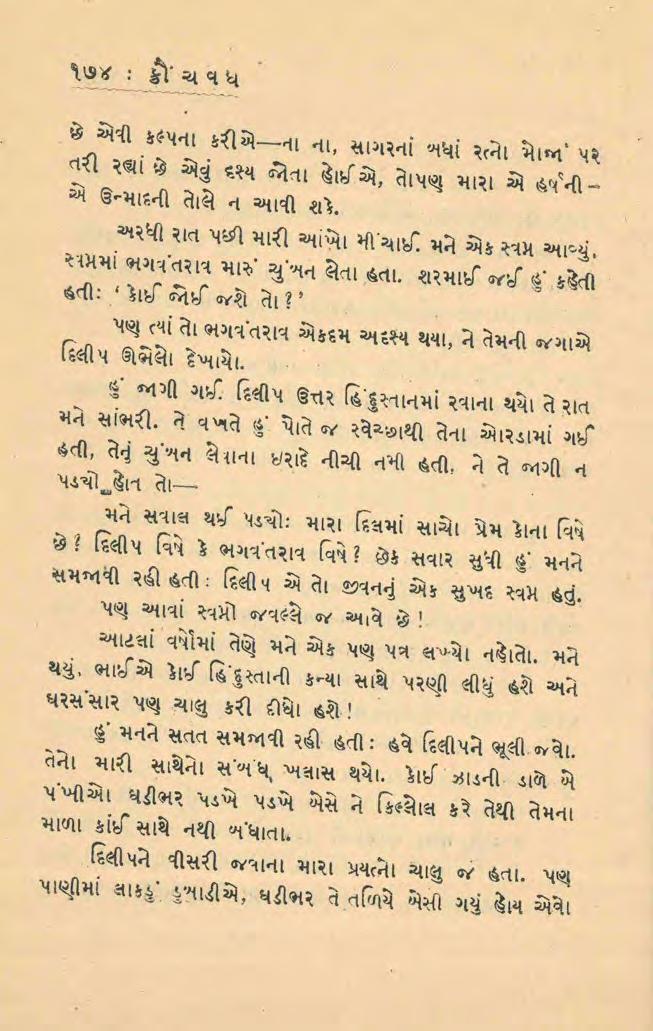 ૧૭૪ : ક્રૌંચવધ
છે એવી કલ્પના કરીએ—ના ના, સાગરનાં બધાં રત્નો મોજાં પર
તરી રહ્યાં છે એવું દૃશ્ય જોતા હોઈએ, તોપણ મારા એ હર્ષની –
એ ઉન્માદની તોલે ન આવી શકે.
અરધી રાત પછી મારી આંખો મીંચાઈ. મને એક સ્વપ્ન આવ્યું.
સ્વપ્નમાં ભગવંતરાવ મારું ચુંબન લેતા હતા. શરમાઈ જઈ હું કહેતી
હતીઃ ‘ કોઈ જોઈ જશે તો ? ’
પણ ત્યાં તો ભગવંતરાવ એકદમ અદૃશ્ય થયા, ને તેમની જગાએ
દિલીપ ઊભેલો દેખાયો.
હું જાગી ગઈ. દિલીપ ઉત્તર હિંદુસ્તાનમાં રવાના થયો તે રાત
મને સાંભરી. તે વખતે હું પોતે જ સ્વેચ્છાથી તેના ઓરડામાં ગઈ
હતી, તેનું ચુંબન લેવાના ઇરાદે નીચી નમી હતી, ને તે જાગી ન
પડ્યો હોત તો—
મને સવાલ થઈ પડ્યોઃ મારા દિલમાં સાચો પ્રેમ કોના વિષે
છે ? દિલીપ વિષે કે ભગવંતરાવ વિષે ? છેક સવાર સુધી હું મનને
સમજાવી રહી હતી : દિલીપ એ તો જીવનનું એક સુખદ સ્વપ્ન હતું.
પણ આવાં સ્વપ્નો જવલ્લે જ આવે છે !
આટલાં વર્ષોમાં તેણે મને એક પણ પત્ર લખ્યો નહોતો. મને
થયું, ભાઈએ કોઈ હિંદુસ્તાની કન્યા સાથે પરણી લીધું હશે અને
ઘરસંસાર પણ ચાલુ કરી દીધો હશે !
હું મનને સતત સમજાવી રહી હતી : હવે દિલીપને ભૂલી જવો.
તેનો મારી સાથેનો સંબંધ ખલાસ થયો. કોઈ ઝાડની ડાળે બે
પંખીઓ ઘડીભર પડખે પડખે બેસે ને કિલ્લોલ કરે તેથી તેમના
માળા કાંઈ સાથે નથી બંધાતા.
દિલીપને વીસરી જવાના મારા પ્રયત્નો ચાલુ જ હતા. પણ
પાણીમાં લાકડું ડુબાડીએ, ઘડીભર તે તળિયે બેસી ગયું હોય એવો